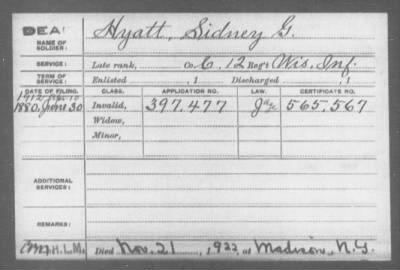 DEAD
NAME OF SOLDIER: Hyatt, Sidney G.
SERVICE: Late rank, Co. C, 12 Reg't Wis. Inf.
TERM OF SERVICE: Enlisted , 1 Discharged , 1
DATE OF FILING. CLASS. APPLICATION NO. LAW. CERTIFICATE NO.
1912
1880, June 30 Invalid, 397.477 565.567
Widow,
Minor,
ADDITIONAL SERVICES:
REMARKS:
H.L.M. Died Nov. 21 , 1922, at Madison, N.Y.